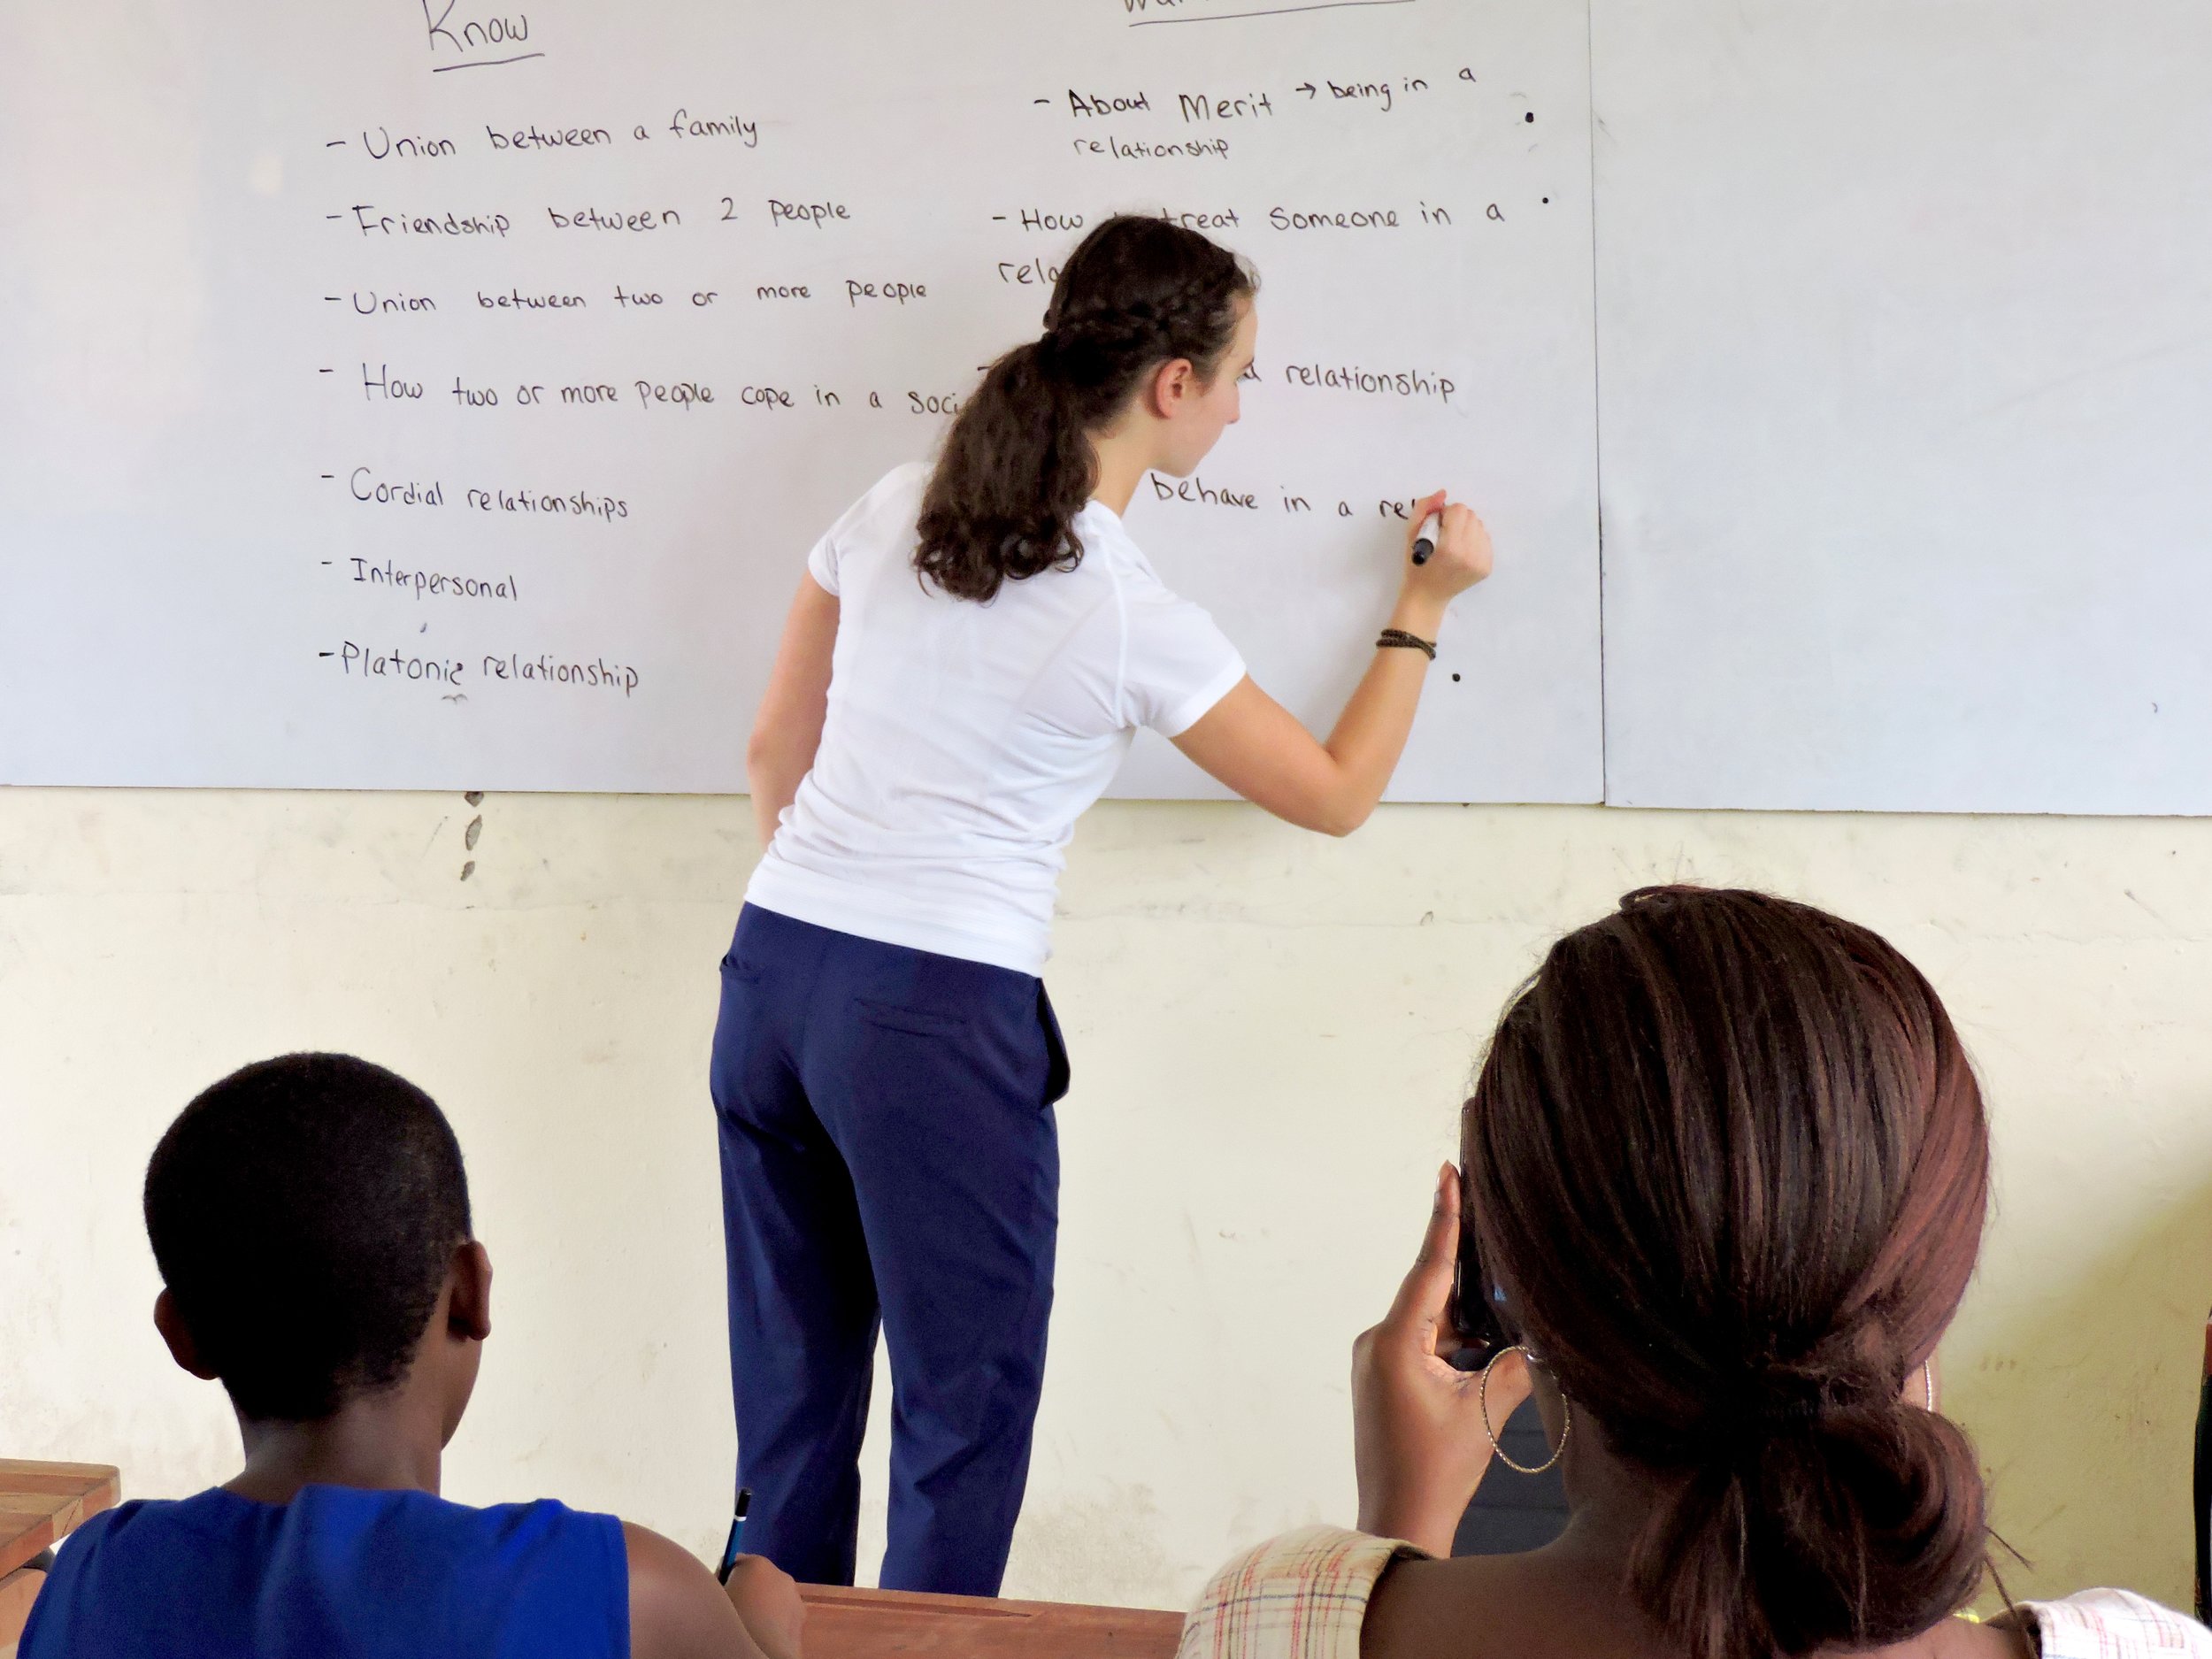 Know
- Union between a family
- Friendship between 2 people
- Union between two or more people
- How two or more people cope in a
- Cordial relationships
- Interpersonal
- Platonic relationship
- About Merit → being in a
relationship
- How treat someone in a
relationship
behave in a